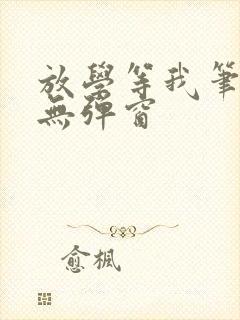 放學等我筆
無彈窗
愈楓